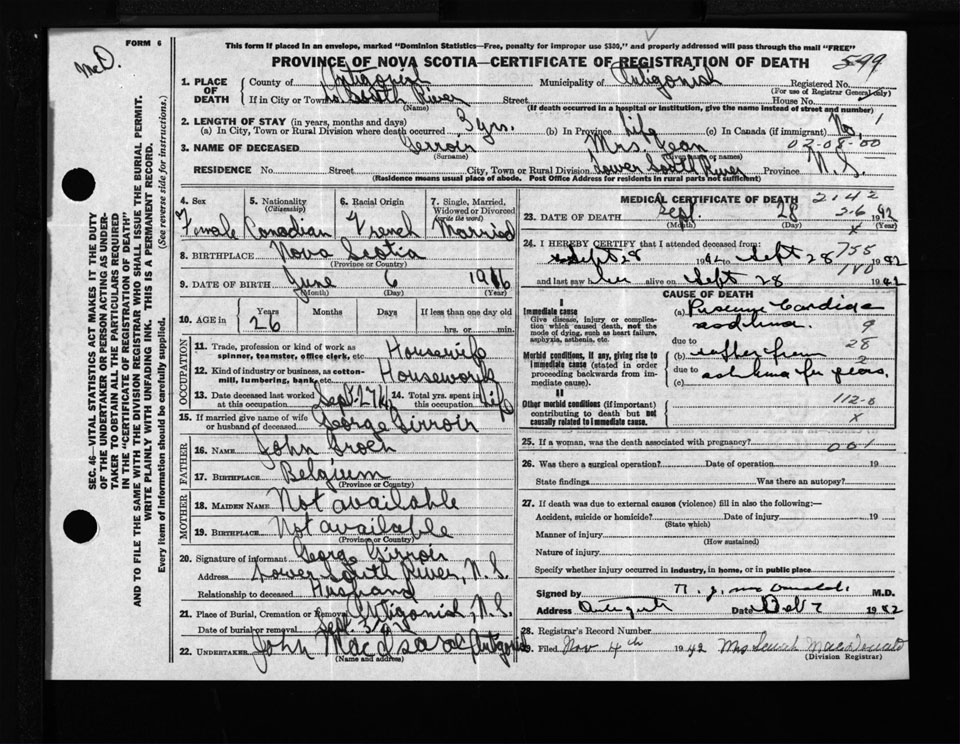 McD.
FORM 6
This form if placed in an envelope, marked "Dominion Statistics—Free, penalty for improper use $300," and properly addressed will pass through the mail "FREE"
PROVINCE OF NOVA SCOTIA—CERTIFICATE OF REGISTRATION OF DEATH
599
1. PLACE OF DEATH
County of Antigonish Municipality of Antigonish Registered No.
(For use of Registrar General only)
If in City or Town South River Street House No.
(Name) (If death occurred in a hospital or institution, give the name instead of street and number)
2. LENGTH OF STAY (in years, months and days)
(a) In City, Town or Rural Division where death occurred 3 yrs. (b) In Province Life (c) In Canada (if immigrant) No 1
02-08-00
3. NAME OF DECEASED Girroir Mrs. Jean
(Surname) (Given name or names)
RESIDENCE No. Street City, Town or Rural Division Lower South River Province N.S.
(Residence means usual place of abode. Post Office Address for residents in rural parts not sufficient)
4. Sex Female
5. Nationality (Citizenship) Canadian
6. Racial Origin French
7. Single, Married, Widowed or Divorced (write the word) Married
8. BIRTHPLACE Nova Scotia
(Province or Country)
9. DATE OF BIRTH June 6 1916
(Month) (Day) (Year)
10. AGE in Years 26 Months Days If less than one day old
hrs. or min.
OCCUPATION
11. Trade, profession or kind of work as spinner, teamster, office clerk, etc. Housewife
12. Kind of industry or business, as cotton-mill, lumbering, bank, etc. Housework
13. Date deceased last worked at this occupation Sept 27/42
14. Total yrs. spent in this occupation Life
15. If married give name of wife or husband of deceased George Girroir
FATHER
16. NAME John
17. BIRTHPLACE Belgium
(Province or Country)
MOTHER
18. MAIDEN NAME Not available
19. BIRTHPLACE Not available
(Province or Country)
20. Signature of informant George Girroir
Address Lower South River, N.S.
Relationship to deceased Husband
21. Place of Burial, Cremation or Removal Antigonish, N.S.
Date of burial or removal Sept 30/42
22. UNDERTAKER John MacIsaac Antigonish
(Name and address)
MEDICAL CERTIFICATE OF DEATH 2142
23. DATE OF DEATH Sept. 28 26 1942
(Month) (Day) x (Year)
24. I HEREBY CERTIFY that I attended deceased from: 755
Sept 28 1942 to Sept 28 1942
180
and last saw her alive on Sept 28 1942
CAUSE OF DEATH
I
Immediate cause
Give disease, injury or complication which caused death, not the mode of dying, such as heart failure, asphyxia, asthenia, etc.
(a) Cardiac asthma. 9
due to 28
Morbid conditions, if any, giving rise to immediate cause (stated in order proceeding backwards from immediate cause).
(b) suffer from 2
due to asthma for years.
(c)
II
Other morbid conditions (if important) contributing to death but not causally related to immediate cause.
112-0
x
25. If a woman, was the death associated with pregnancy? 001
26. Was there a surgical operation? Date of operation 19
State findings Was there an autopsy?
27. If death was due to external causes (violence) fill in also the following:—
Accident, suicide or homicide? Date of injury 19
(State which)
Manner of injury
(How sustained)
Nature of injury
Specify whether injury occurred in industry, in home, or in public place
Signed by M.D.
Address Antigonish Date Oct 7 1942
28. Registrar's Record Number
29. Filed Nov 4th 1942 Mrs MacDonald
(Division Registrar)
SEC. 46—VITAL STATISTICS ACT MAKES IT THE DUTY OF THE UNDERTAKER OR PERSON ACTING AS UNDERTAKER TO OBTAIN ALL THE PARTICULARS REQUIRED IN THE "CERTIFICATE OF REGISTRATION OF DEATH" AND TO FILE THE SAME WITH THE DIVISION REGISTRAR WHO SHALL ISSUE THE BURIAL PERMIT.
WRITE PLAINLY WITH UNFADING INK. THIS IS A PERMANENT RECORD.
Every item of information should be carefully supplied. (See reverse side for instructions.)